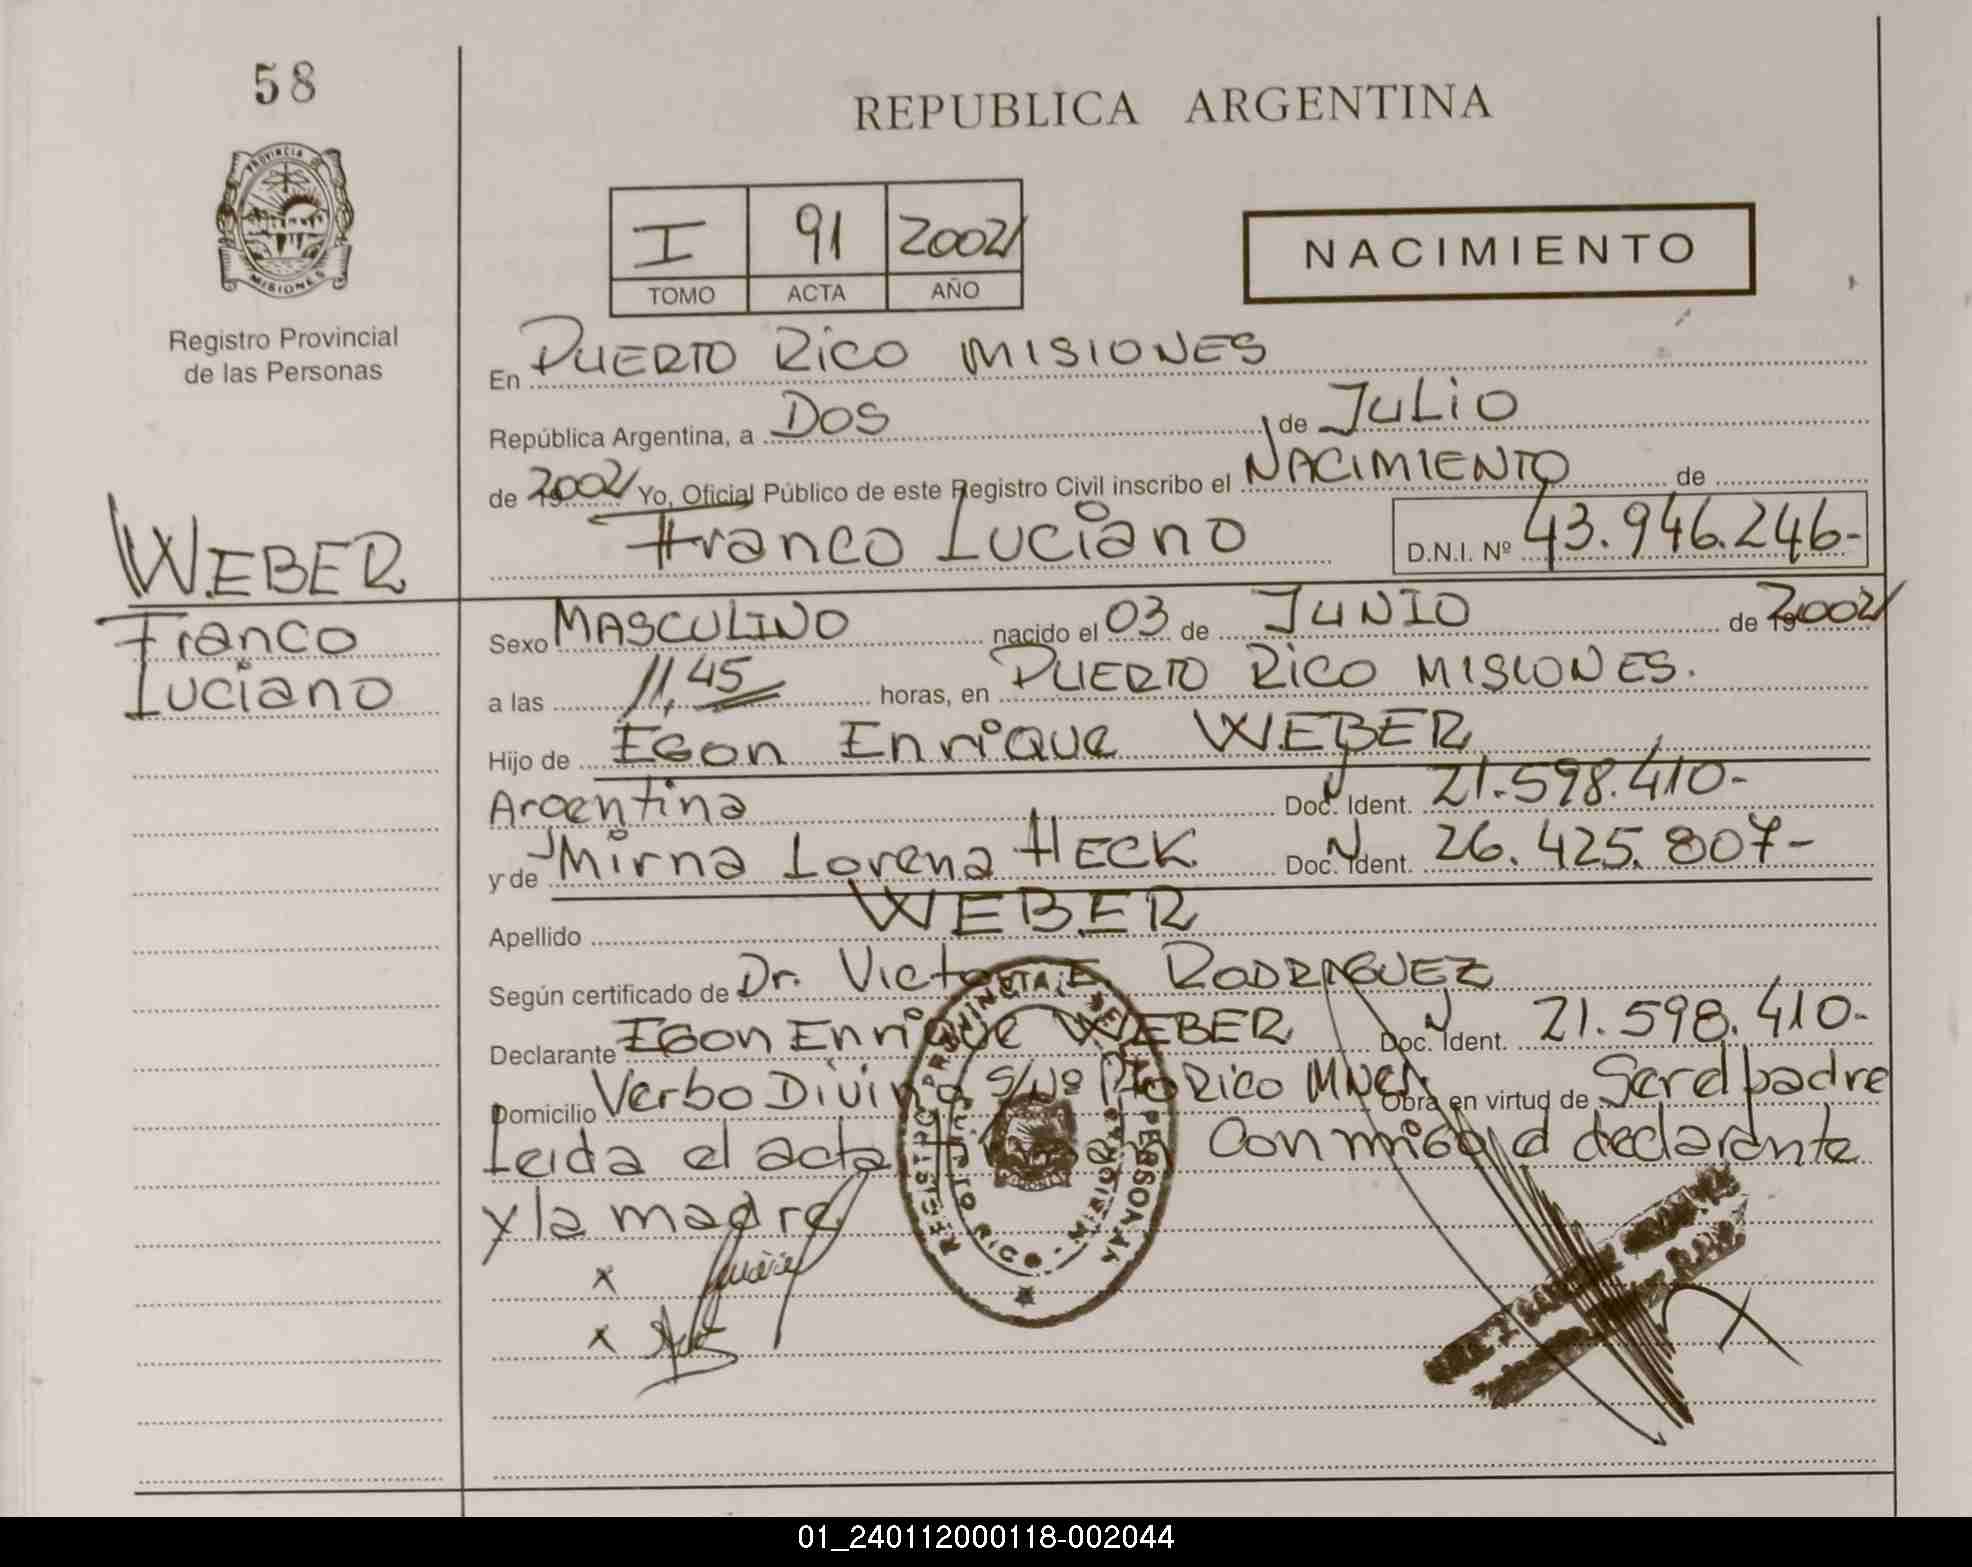 58
REPUBLICA ARGENTINA
PROVINCIA DE MISIONES
Registro Provincial
de las Personas
I 91 2002
TOMO ACTA AÑO
NACIMIENTO
En PUERTO RICO MISIONES
República Argentina, a DOS de JULIO
de 2002 Yo, Oficial Público de este Registro Civil inscribo el NACIMIENTO de
Franco Luciano D.N.I. Nº 43.946.246-
WEBER
Franco
Luciano
Sexo MASCULINO nacido el 03 de JUNIO de 2002
a las 11,45 horas, en PUERTO RICO MISIONES.
Hijo de EGon EnriQue WEBER
Argentina Doc. Ident. 21.598.410-
y de Mirna Lorena HECK Doc. Ident. 26.425.807-
Apellido WEBER
Según certificado de Dr. Victor E. RODRIGUEZ
Declarante EGon Enrique WEBER Doc. Ident. 21.598.410-
Domicilio Verbo Divino S/Nº Pto Rico Mnes Obra en virtud de Ser el padre
Leida el acta firman conmigo el declarante
y la madre
x
x
REGISTRO PROVINCIAL DE PERSONAS
PUERTO RICO - MISIONES
01_240112000118-002044